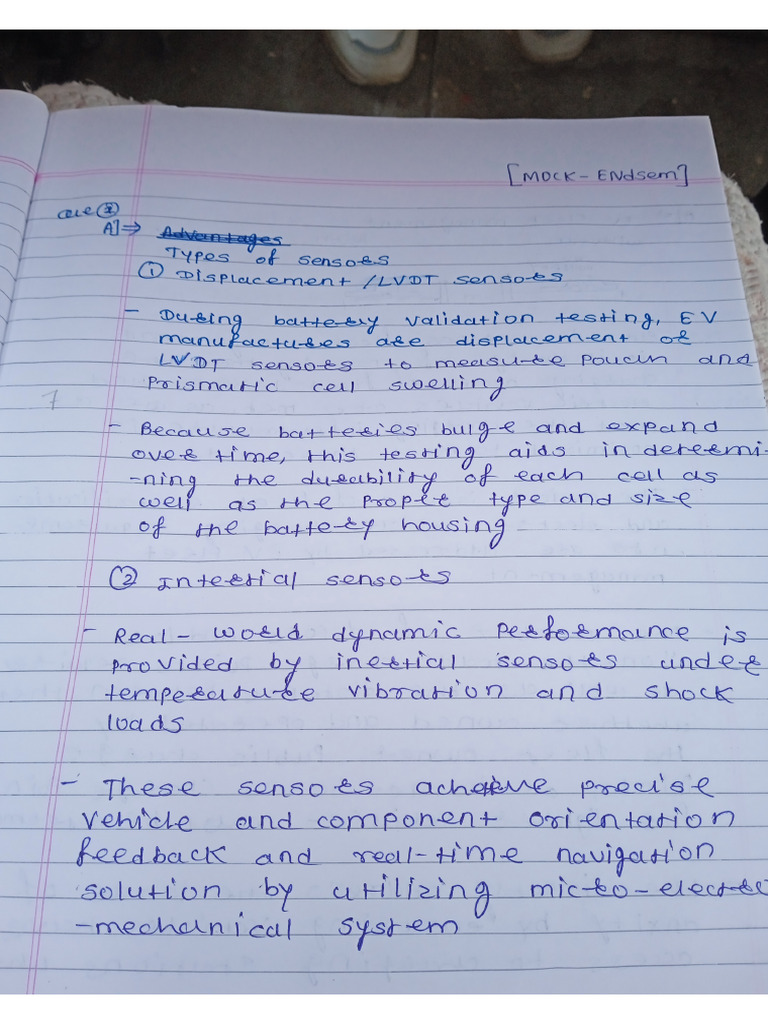 [MOCK-ENdsem]
Que ②
A]⇒ Advantages
Types of sensors
① Displacement /LVDT sensors
- During battery validation testing, EV
manufactures are displacement or
LVDT sensors to measure Poucin and
Prismatic cell swelling
- Because batteries bulge and expand
over time, this testing aids in determi-
-ning the durability of each cell as
well as the proper type and size
of the battery housing
② Intertial sensors
- Real-world dynamic performance is
provided by inertial sensors under
temperature vibration and shock
loads
- These sensors acheive precise
vehicle and component orientation
feedback and real-time navigation
solution by utilizing micro-electro
-mechanical system